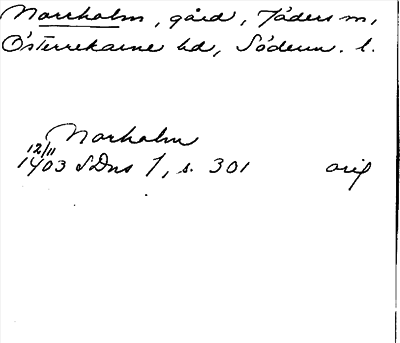 Norrholm, gård, Jäders sn,
Österrekarne hd, Söderm. l.
Norholm
12/11
1403 SDns 1, s. 301 orig